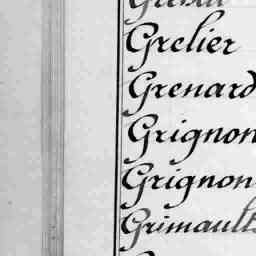 Grelier
Grenard
Grignon
Grignon
Grimault